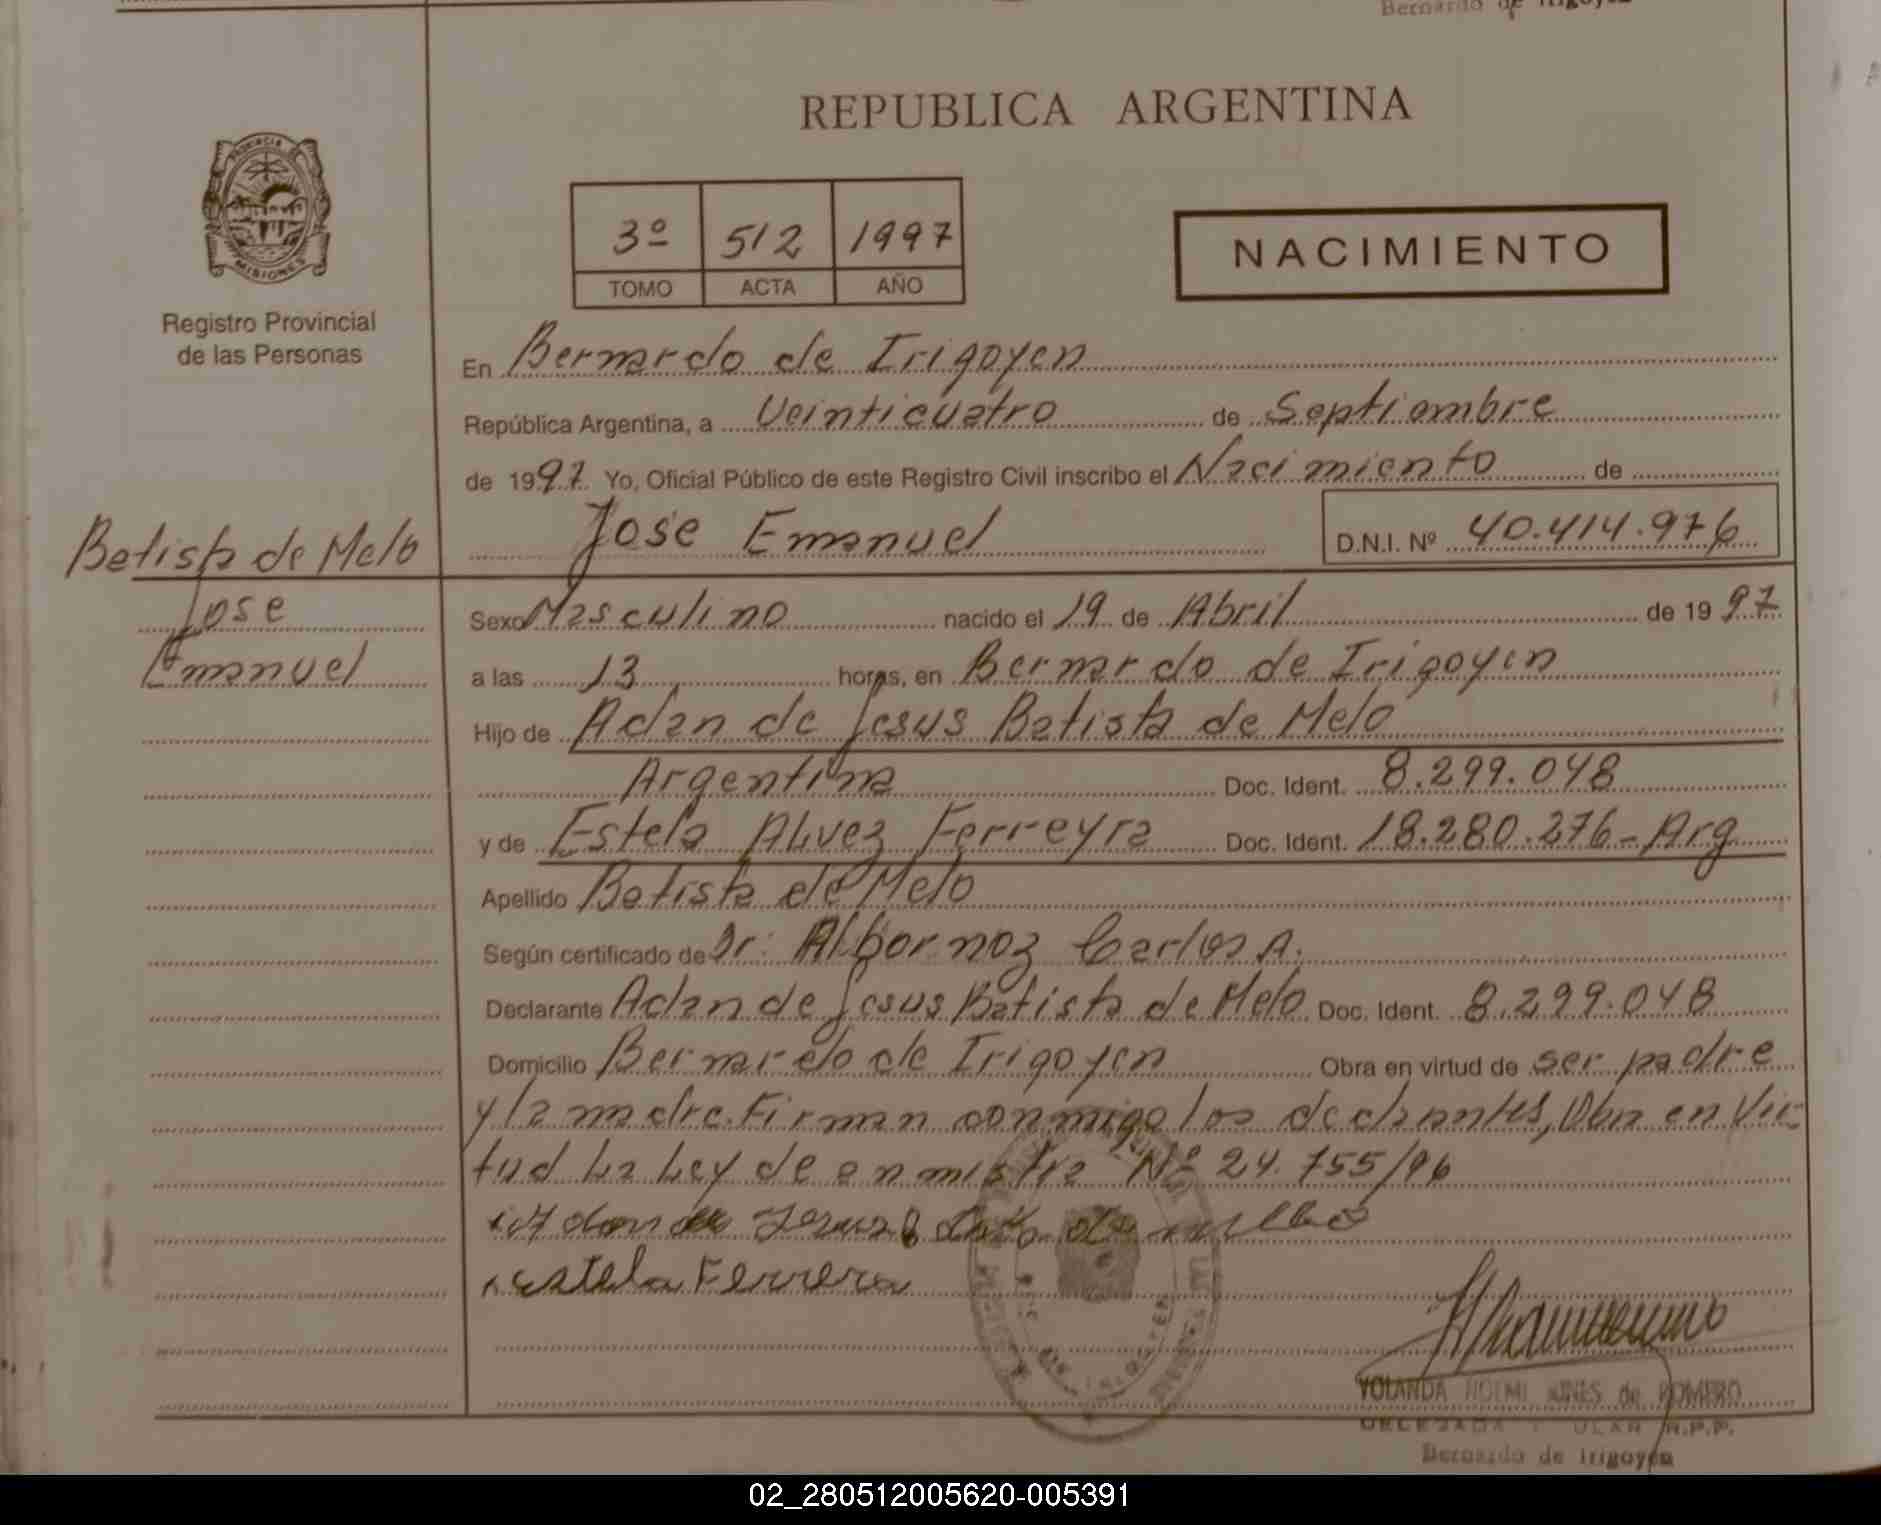 Bernardo de Irigoyen
REPUBLICA ARGENTINA
PROVINCIA DE
MISIONES
Registro Provincial
de las Personas
3º 512 1997
TOMO ACTA AÑO
NACIMIENTO
En Bernardo de Irigoyen
República Argentina, a Veinticuatro de Septiembre
de 1997 Yo, Oficial Público de este Registro Civil inscribo el Nacimiento de
Jose Emanuel D.N.I. Nº 40.414.976
Batista de Melo
Jose
Emanuel
Sexo Masculino nacido el 19 de Abril de 1997
a las 13 horas, en Bernardo de Irigoyen
Hijo de Adan de Jesus Batista de Melo
Argentina Doc. Ident. 8.299.048
y de Estela Alvez Ferreyra Doc. Ident. 18.280.276-Arg
Apellido Batista de Melo
Según certificado de Dr: Albornoz Carlos A.
Declarante Adan de Jesus Batista de Melo Doc. Ident. 8.299.048
Domicilio Bernardo de Irigoyen Obra en virtud de ser padre
y la madre. Firman conmigo los declarantes, Obra en Vir-
tud La Ley de enmistia Nº 24.755/96
Estela Ferrera
YOLANDA NOEMI de ROMERO
DELEGADA R.P.P.
Bernardo de Irigoyen
02_280512005620-005391